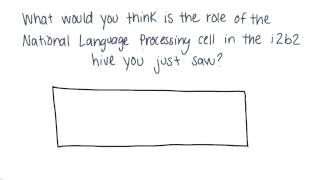 What would you think is the role of the
National Language Processing cell in the i2b2
hive you just saw?